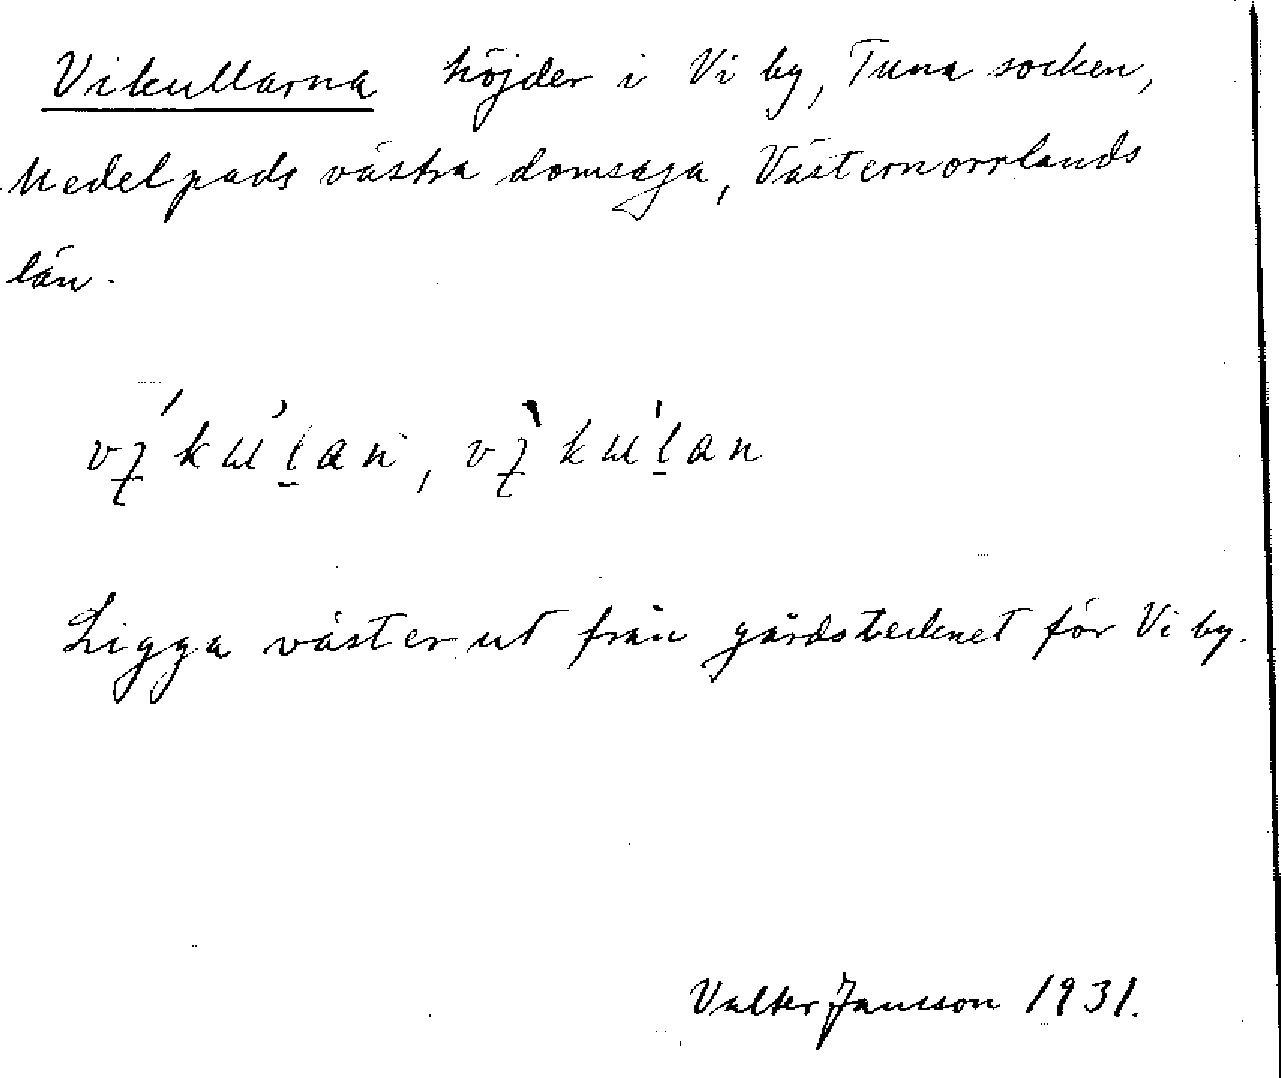 Vikullarna höjder i Vi by, Tuna socken,
Medelpads västra domsaga, Västernorrlands
län.
Ligga väster ut från gärdstecknet för Vi by.
Valter Jansson 1931.